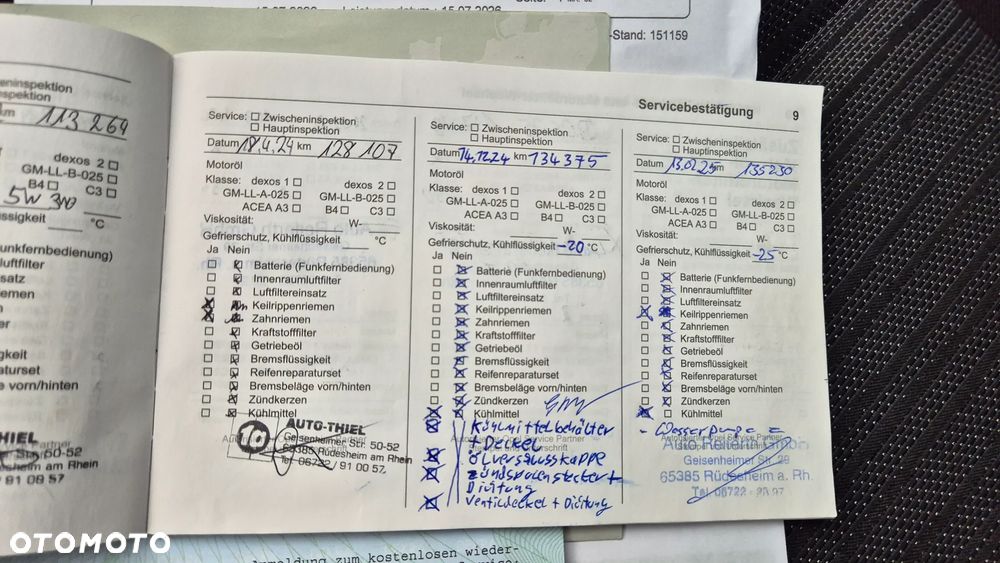 Leistungsdatum : 15.07.2026
-Stand: 151159
eninspektion
spektion
km 113 269
dexos 2 □
GM-LL-B-025 □
B4 □ C3 □
5W
üssigkeit °C
unkfernbedienung)
ftfilter
satz
riemen
er
gkeit
raturset
äge vorn/hinten
HIEL
Str. 50-52
esheim am Rhein
/ 91 00 57
Servicebestätigung 9
Service: □ Zwischeninspektion
□ Hauptinspektion
Datum 18.4.24 km 128 107
Motoröl
Klasse: dexos 1 □ dexos 2 □
GM-LL-A-025 □ GM-LL-B-025 □
ACEA A3 □ B4 □ C3 □
Viskosität: W-
Gefrierschutz, Kühlflüssigkeit °C
Ja Nein
Batterie (Funkfernbedienung)
Innenraumluftfilter
Luftfiltereinsatz
Keilrippenriemen
Zahnriemen
Kraftstofffilter
Getriebeöl
Bremsflüssigkeit
Reifenreparaturset
Bremsbeläge vorn/hinten
Zündkerzen
Kühlmittel
AUTO-THIEL
Geisenheimer Str. 50-52
65385 Rüdesheim am Rhein
Tel. 06722 / 91 00 57
Service: □ Zwischeninspektion
□ Hauptinspektion
Datum 14.12.24 km 134375
Motoröl
Klasse: dexos 1 □ dexos 2 □
GM-LL-A-025 □ GM-LL-B-025 □
ACEA A3 □ B4 □ C3 □
Viskosität: W-
Gefrierschutz, Kühlflüssigkeit -20 °C
Ja Nein
Batterie (Funkfernbedienung)
Innenraumluftfilter
Luftfiltereinsatz
Keilrippenriemen
Zahnriemen
Kraftstofffilter
Getriebeöl
Bremsflüssigkeit
Reifenreparaturset
Bremsbeläge vorn/hinten
Zündkerzen
Kühlmittel
Kühlmittelbehälter
+ Deckel
Autorisierter Opel Service Partner
Ölverschlusskappe
Zündspulenstecker +
Dichtung
Ventildeckel + Dichtung
Service: □ Zwischeninspektion
□ Hauptinspektion
Datum 13.02.25 km 135230
Motoröl
Klasse: dexos 1 □ dexos 2 □
GM-LL-A-025 □ GM-LL-B-025 □
ACEA A3 □ B4 □ C3 □
Viskosität: W-
Gefrierschutz, Kühlflüssigkeit -25 °C
Ja Nein
Batterie (Funkfernbedienung)
Innenraumluftfilter
Luftfiltereinsatz
Keilrippenriemen
Zahnriemen
Kraftstofffilter
Getriebeöl
Bremsflüssigkeit
Reifenreparaturset
Bremsbeläge vorn/hinten
Zündkerzen
Kühlmittel
- Wasserpumpe
Geisenheimer Str.
65385 Rüdesheim a. Rh.
Tel. 06722
OTOMOTO
zum kostenlosen wieder-